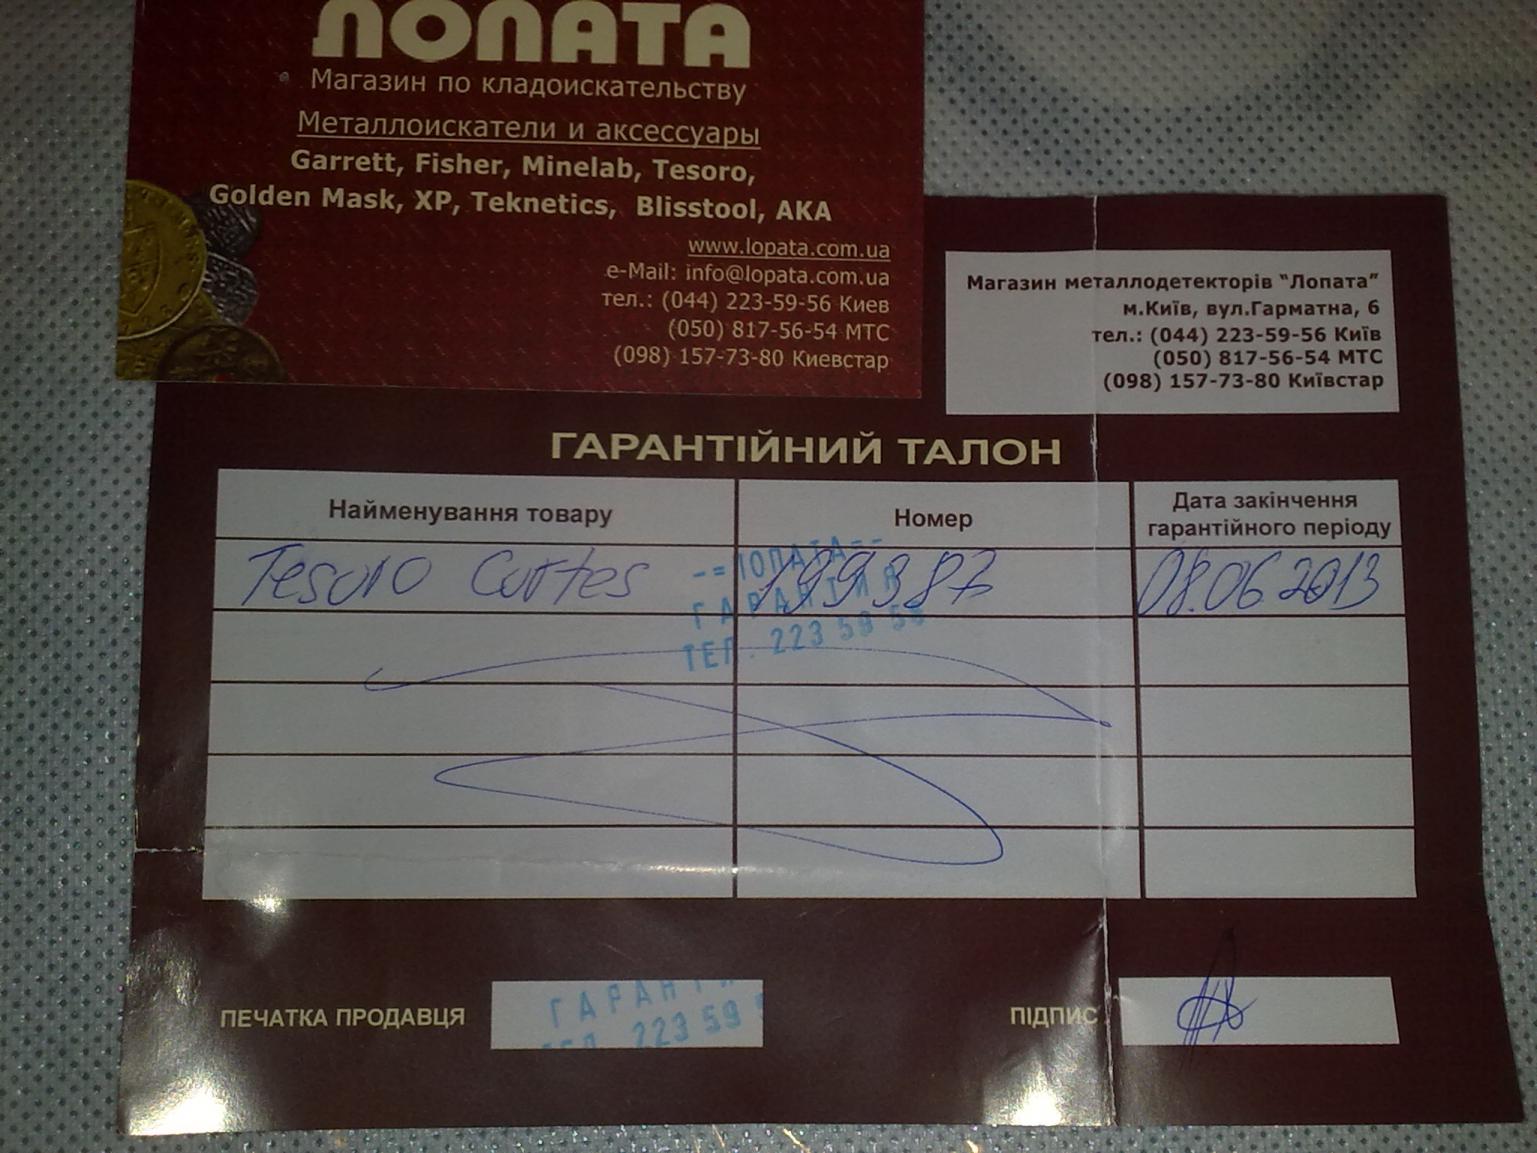 ЛОПАТА
Магазин по кладоискательству
Металлоискатели и аксессуары
Garrett, Fisher, Minelab, Tesoro,
Golden Mask, XP, Teknetics, Blisstool, AKA
www.lopata.com.ua
e-Mail: info@lopata.com.ua
тел.: (044) 223-59-56 Киев
(050) 817-56-54 МТС
(098) 157-73-80 Киевстар
Магазин металлодетекторів "Лопата"
м.Київ, вул.Гарматна, 6
тел.: (044) 223-59-56 Київ
(050) 817-56-54 МТС
(098) 157-73-80 Київстар
ГАРАНТІЙНИЙ ТАЛОН
Найменування товару
Номер
Дата закінчення
гарантійного періоду
Tesoro Cortes
199387
08.06.2013
-=ЛОПАТА=-
ГАРАНТИЯ
ТЕЛ. 223 59 56
ПЕЧАТКА ПРОДАВЦЯ
ГАРАНТИ
ТЕЛ. 223 59
ПІДПИС